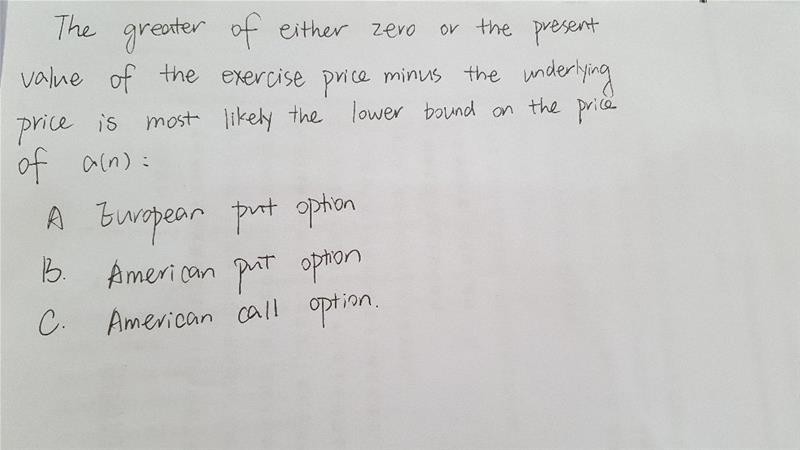 The greater of either zero or the present
value of the exercise price minus the underlying
price is most likely the lower bound on the price
of a(n):
A European put option
B. American put option
C. American call option.